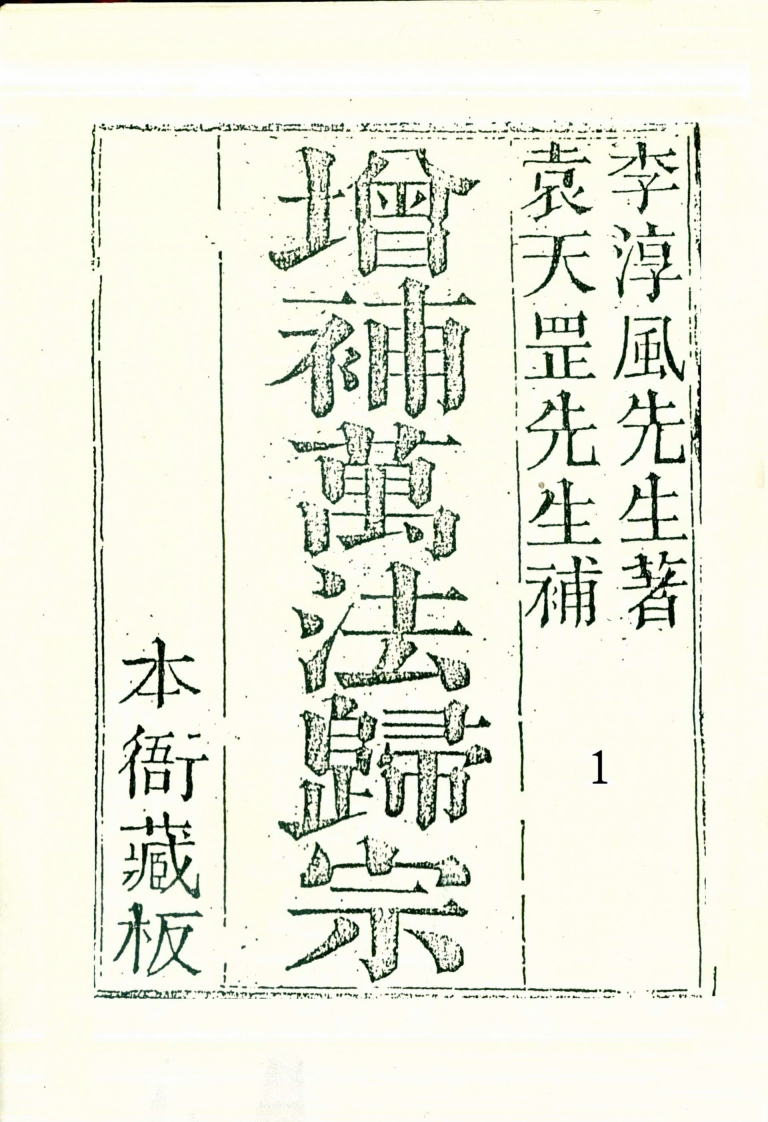 李淳風先生著
袁天罡先生補
1
增補萬法歸宗
本衙藏板